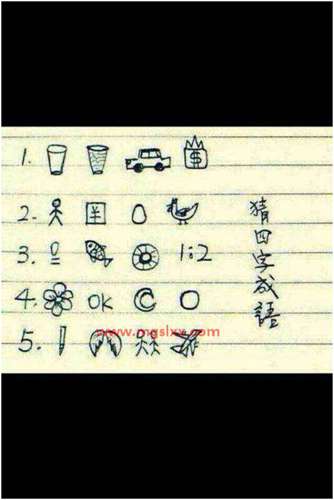 1. $
2. 羊
3. 1:2
4. OK C O
5.
猜四字成語
www.mgslxy.com